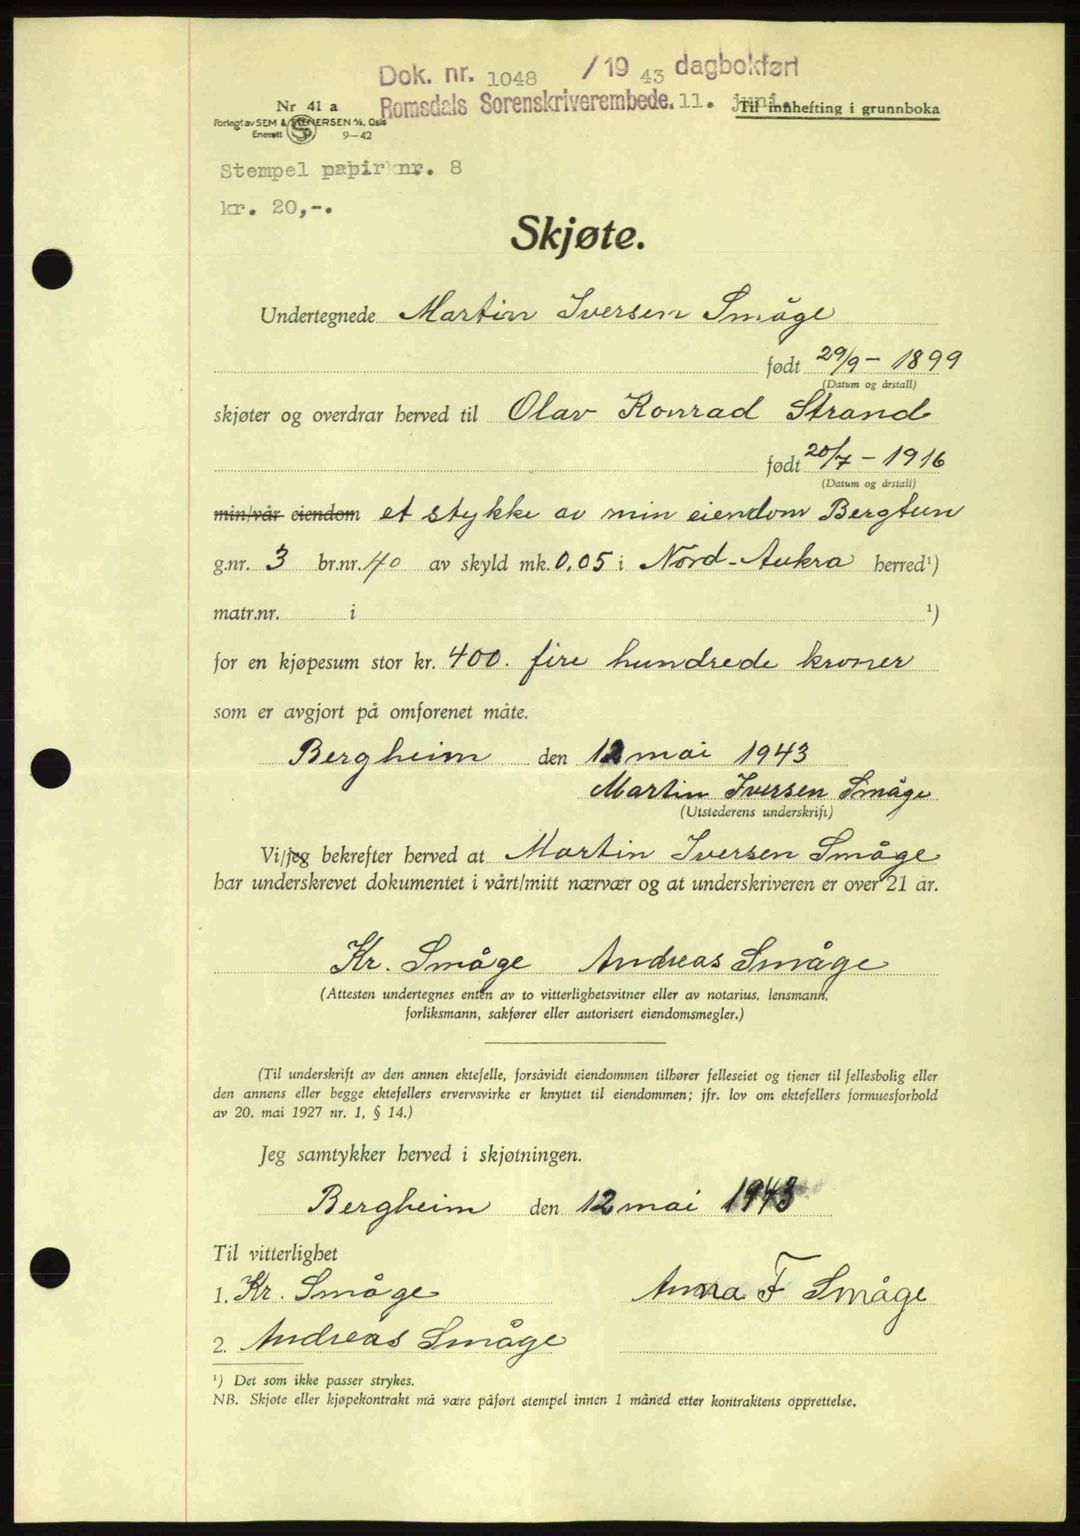 Dok. nr. 1048 /19 43 dagbokført
Romsdals Sorenskriverembede. 11. juni.
Nr 41 a
Til innhefting i grunnboka
Forlagt av SEM & STENERSEN A/S, Oslo
Enerett 9—42
Stempel papir nr. 8
kr. 20,-.
Skjøte.
Undertegnede Martin Iversen Småge
født 29/9 - 1899
(Datum og årstall)
skjøter og overdrar herved til Olav Konrad Strand
født 20/7 - 1916
(Datum og årstall)
min/vår eiendom et stykke av min eiendom Bergtun
g.nr. 3 br.nr. 40 av skyld mk. 0.05 i Nord-Aukra herred¹)
matr.nr. i ¹)
for en kjøpesum stor kr. 400. fire hundrede kroner
som er avgjort på omforenet måte.
Bergheim den 12 mai 1943
Martin Iversen Småge
(Utstederens underskrift)
Vi/jeg bekrefter herved at Martin Iversen Småge
har underskrevet dokumentet i vårt/mitt nærvær og at underskriveren er over 21 år.
Kr. Småge Andreas Småge
(Attesten undertegnes enten av to vitterlighetsvitner eller av notarius, lensmann,
forliksmann, sakfører eller autorisert eiendomsmegler.)
(Til underskrift av den annen ektefelle, forsåvidt eiendommen tilhører felleseiet og tjener til fellesbolig eller
den annens eller begge ektefellers ervervsvirke er knyttet til eiendommen; jfr. lov om ektefellers formuesforhold
av 20. mai 1927 nr. 1, § 14.)
Jeg samtykker herved i skjøtningen.
Bergheim den 12 mai 1943
Til vitterlighet
1. Kr. Småge Anna F Småge
2. Andreas Småge
¹) Det som ikke passer strykes.
NB. Skjøte eller kjøpekontrakt må være påført stempel innen 1 måned etter kontraktens opprettelse.